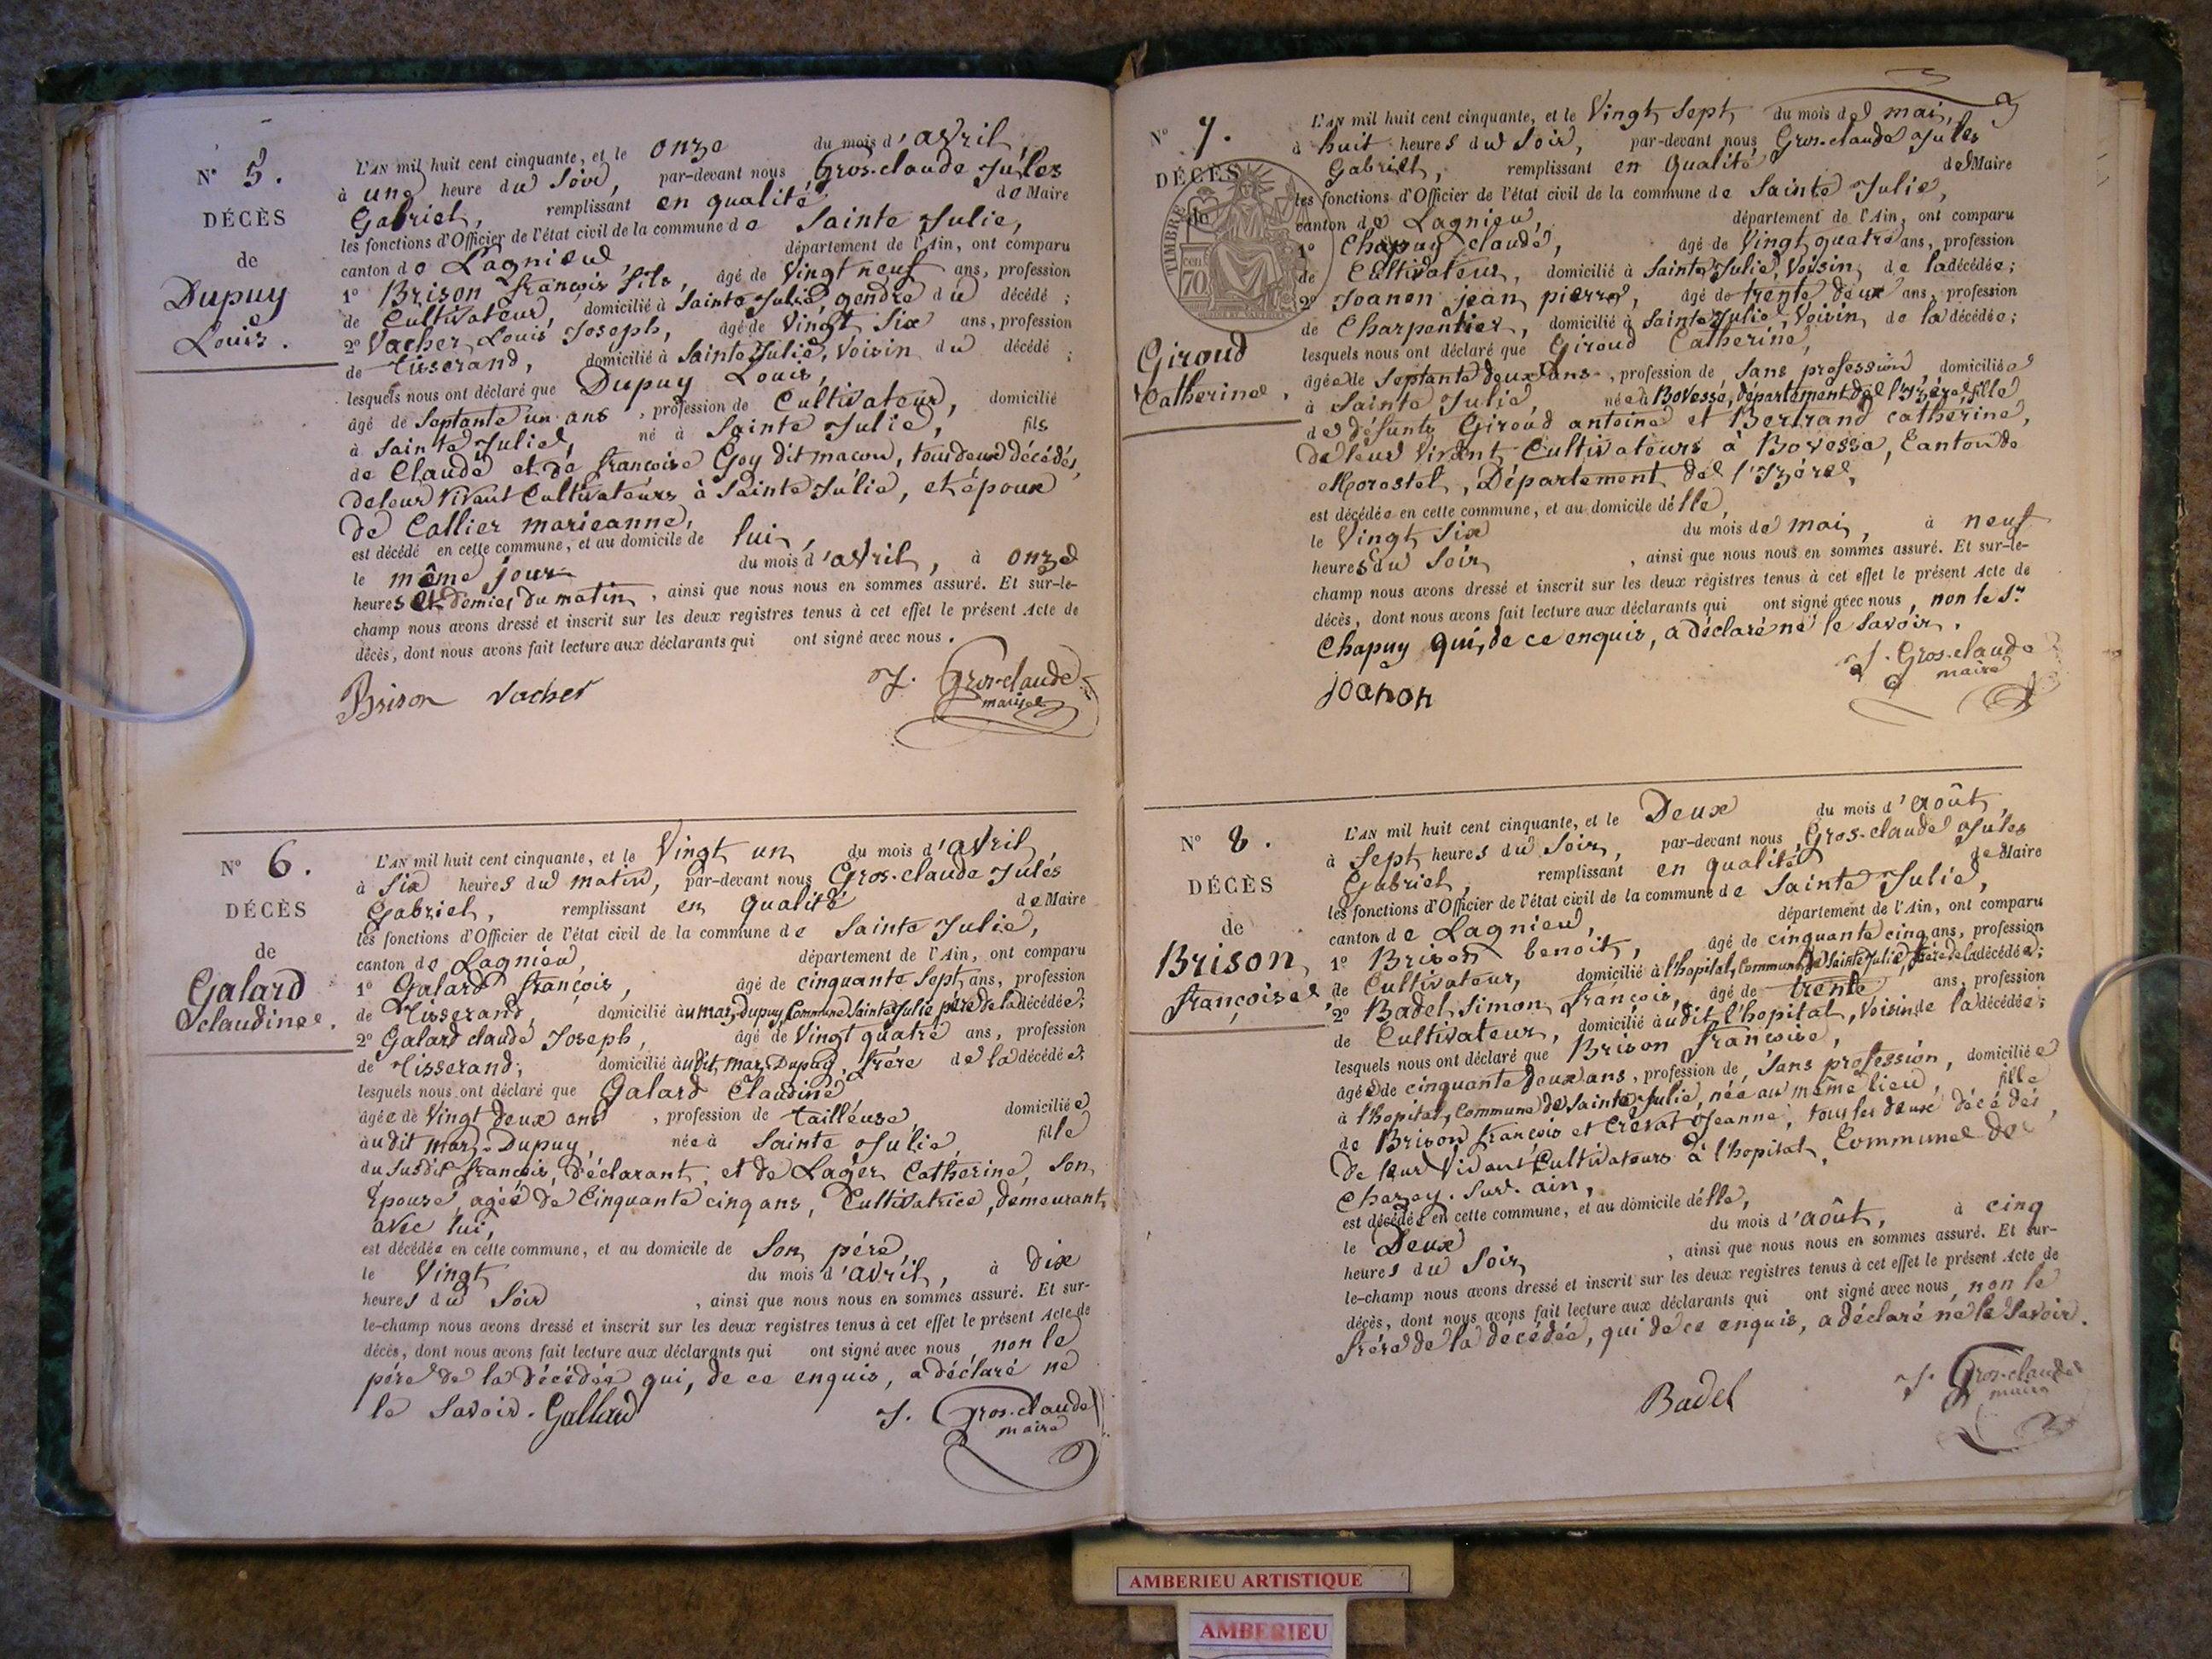 N° 5.
DÉCÈS
de
Dupuy
Louis.
L'AN mil huit cent cinquante, et le onze du mois d'avril,
à une heure du soir, par-devant nous Gros-claude Jules
Gabriel, remplissant en qualité de Maire
les fonctions d'Officier de l'état civil de la commune de Sainte Julie,
canton de Lagnieu département de l'Ain, ont comparu
1° Brison françois fils, âgé de Vingt neuf ans, profession
de Cultivateur, domicilié à Sainte Julie, gendre du décédé ;
2° Vacher Louis Joseph, âgé de Vingt Six ans, profession
de tisserand, domicilié à Sainte Julie, Voisin du décédé ;
lesquels nous ont déclaré que Dupuy Louis,
âgé de Septante un ans, profession de Cultivateur, domicilié
à Sainte Julie, né à Sainte Julie, fils
de Claude et de françoise Goy dit macon, tous deux décédés,
de leur Vivant Cultivateurs à Sainte Julie, et époux
de Collier marieanne,
est décédé en cette commune, et au domicile de lui,
le même jour du mois d'avril, à onze
heures et demies du matin, ainsi que nous nous en sommes assuré. Et sur-le-
champ nous avons dressé et inscrit sur les deux registres tenus à cet effet le présent Acte de
décès, dont nous avons fait lecture aux déclarants qui ont signé avec nous.
Brison Vacher J. Gros-claude
maire
N° 6.
DÉCÈS
de
Galard
claudine.
L'AN mil huit cent cinquante, et le Vingt un du mois d'avril,
à Six heures du matin, par-devant nous Gros-claude Jules
Gabriel, remplissant en qualité de Maire
les fonctions d'Officier de l'état civil de la commune de Sainte Julie,
canton de Lagnieu, département de l'Ain, ont comparu
1° Galard françois, âgé de cinquante Sept ans, profession
de Tisserand, domicilié au mas-Dupuy, Commune Sainte Julie, père de la décédée ;
2° Galard claude Joseph, âgé de Vingt quatre ans, profession
de Tisserand, domicilié audit mas-Dupuy, frère de la décédée ;
lesquels nous ont déclaré que Galard Claudine
âgée de Vingt deux ans, profession de tailleuse, domiciliée
audit mas-Dupuy, née à Sainte Julie, fille
du Susdit françois, déclarant, et de Lager Catherine, Son
Epouse, agée de Cinquante cinq ans, Cultivatrice, demeurant
avec lui,
est décédée en cette commune, et au domicile de Son père,
le Vingt du mois d'avril, à dix
heures du Soir, ainsi que nous nous en sommes assuré. Et sur-
le-champ nous avons dressé et inscrit sur les deux registres tenus à cet effet le présent Acte de
décès, dont nous avons fait lecture aux déclarants qui ont signé avec nous, non le
père de la décédée qui, de ce enquis, a déclaré ne
le Savoir. Gallard J. Gros-claude
maire
3
N° 7.
DÉCÈS
de
TIMBRE
70 cen
Giroud
Catherine.
L'AN mil huit cent cinquante, et le Vingt Sept du mois de mai,
à huit heures du Soir, par-devant nous Gros-claude Jules
Gabriel, remplissant en qualité de Maire
les fonctions d'Officier de l'état civil de la commune de Sainte Julie,
canton de Lagnieu, département de l'Ain, ont comparu
1° Chapuy claude, âgé de Vingt quatre ans, profession
de Cultivateur, domicilié à Sainte Julie, Voisin de la décédée ;
2° Joanon jean pierre, âgé de trente deux ans, profession
de Charpentier, domicilié à Sainte Julie, Voisin de la décédée ;
lesquels nous ont déclaré que Giroud Catherine,
âgée de Septante deux ans, profession de, Sans profession, domiciliée
à Sainte Julie, née à Bovesse, département de l'Izère, fille
de défunts Giroud antoine et Bertrand catherine,
de leur Vivant Cultivateurs à Bovesse, Canton de
Morestel, Département de l'Izère,
est décédée en cette commune, et au domicile d'elle,
le Vingt Six du mois de mai, à neuf
heures du Soir, ainsi que nous nous en sommes assuré. Et sur-le-
champ nous avons dressé et inscrit sur les deux régistres tenus à cet effet le présent Acte de
décès, dont nous avons fait lecture aux déclarants qui ont signé avec nous, non le Sr
Chapuy qui, de ce enquis, a déclaré ne le Savoir.
Joanon J. Gros-claude
maire
N° 8.
DÉCÈS
de
Brison
françoise.
L'AN mil huit cent cinquante, et le Deux du mois d'août,
à Sept heures du Soir, par-devant nous Gros-claude Jules
Gabriel, remplissant en qualité de Maire
les fonctions d'Officier de l'état civil de la commune de Sainte Julie,
canton de Lagnieu, département de l'Ain, ont comparu
1° Brison benoit, âgé de cinquante cinq ans, profession
de Cultivateur, domicilié à l'hopital, Commune de Sainte Julie, frère de la décédée ;
2° Badel Simon françois, âgé de trente ans, profession
de Cultivateur, domicilié audit l'hopital, Voisin de la décédée ;
lesquels nous ont déclaré que Brison françoise,
âgée de cinquante deux ans, profession de, Sans profession, domiciliée
à l'hopital, Commune de Sainte Julie, née au même lieu, fille
de Brison françois et Crevat Jeanne, tous les deux décédés,
de leur Vivant Cultivateurs à l'hopital, Commune de
Chazey-sur-ain,
est décédée en cette commune, et au domicile d'elle,
le Deux du mois d'août, à cinq
heures du Soir, ainsi que nous nous en sommes assuré. Et sur-
le-champ nous avons dressé et inscrit sur les deux registres tenus à cet effet le présent Acte de
décès, dont nous avons fait lecture aux déclarants qui ont signé avec nous, non le
frère de la décédée, qui de ce enquis, a déclaré ne le Savoir.
Badel J. Gros-claude
maire
AMBERIEU ARTISTIQUE
AMBERIEU